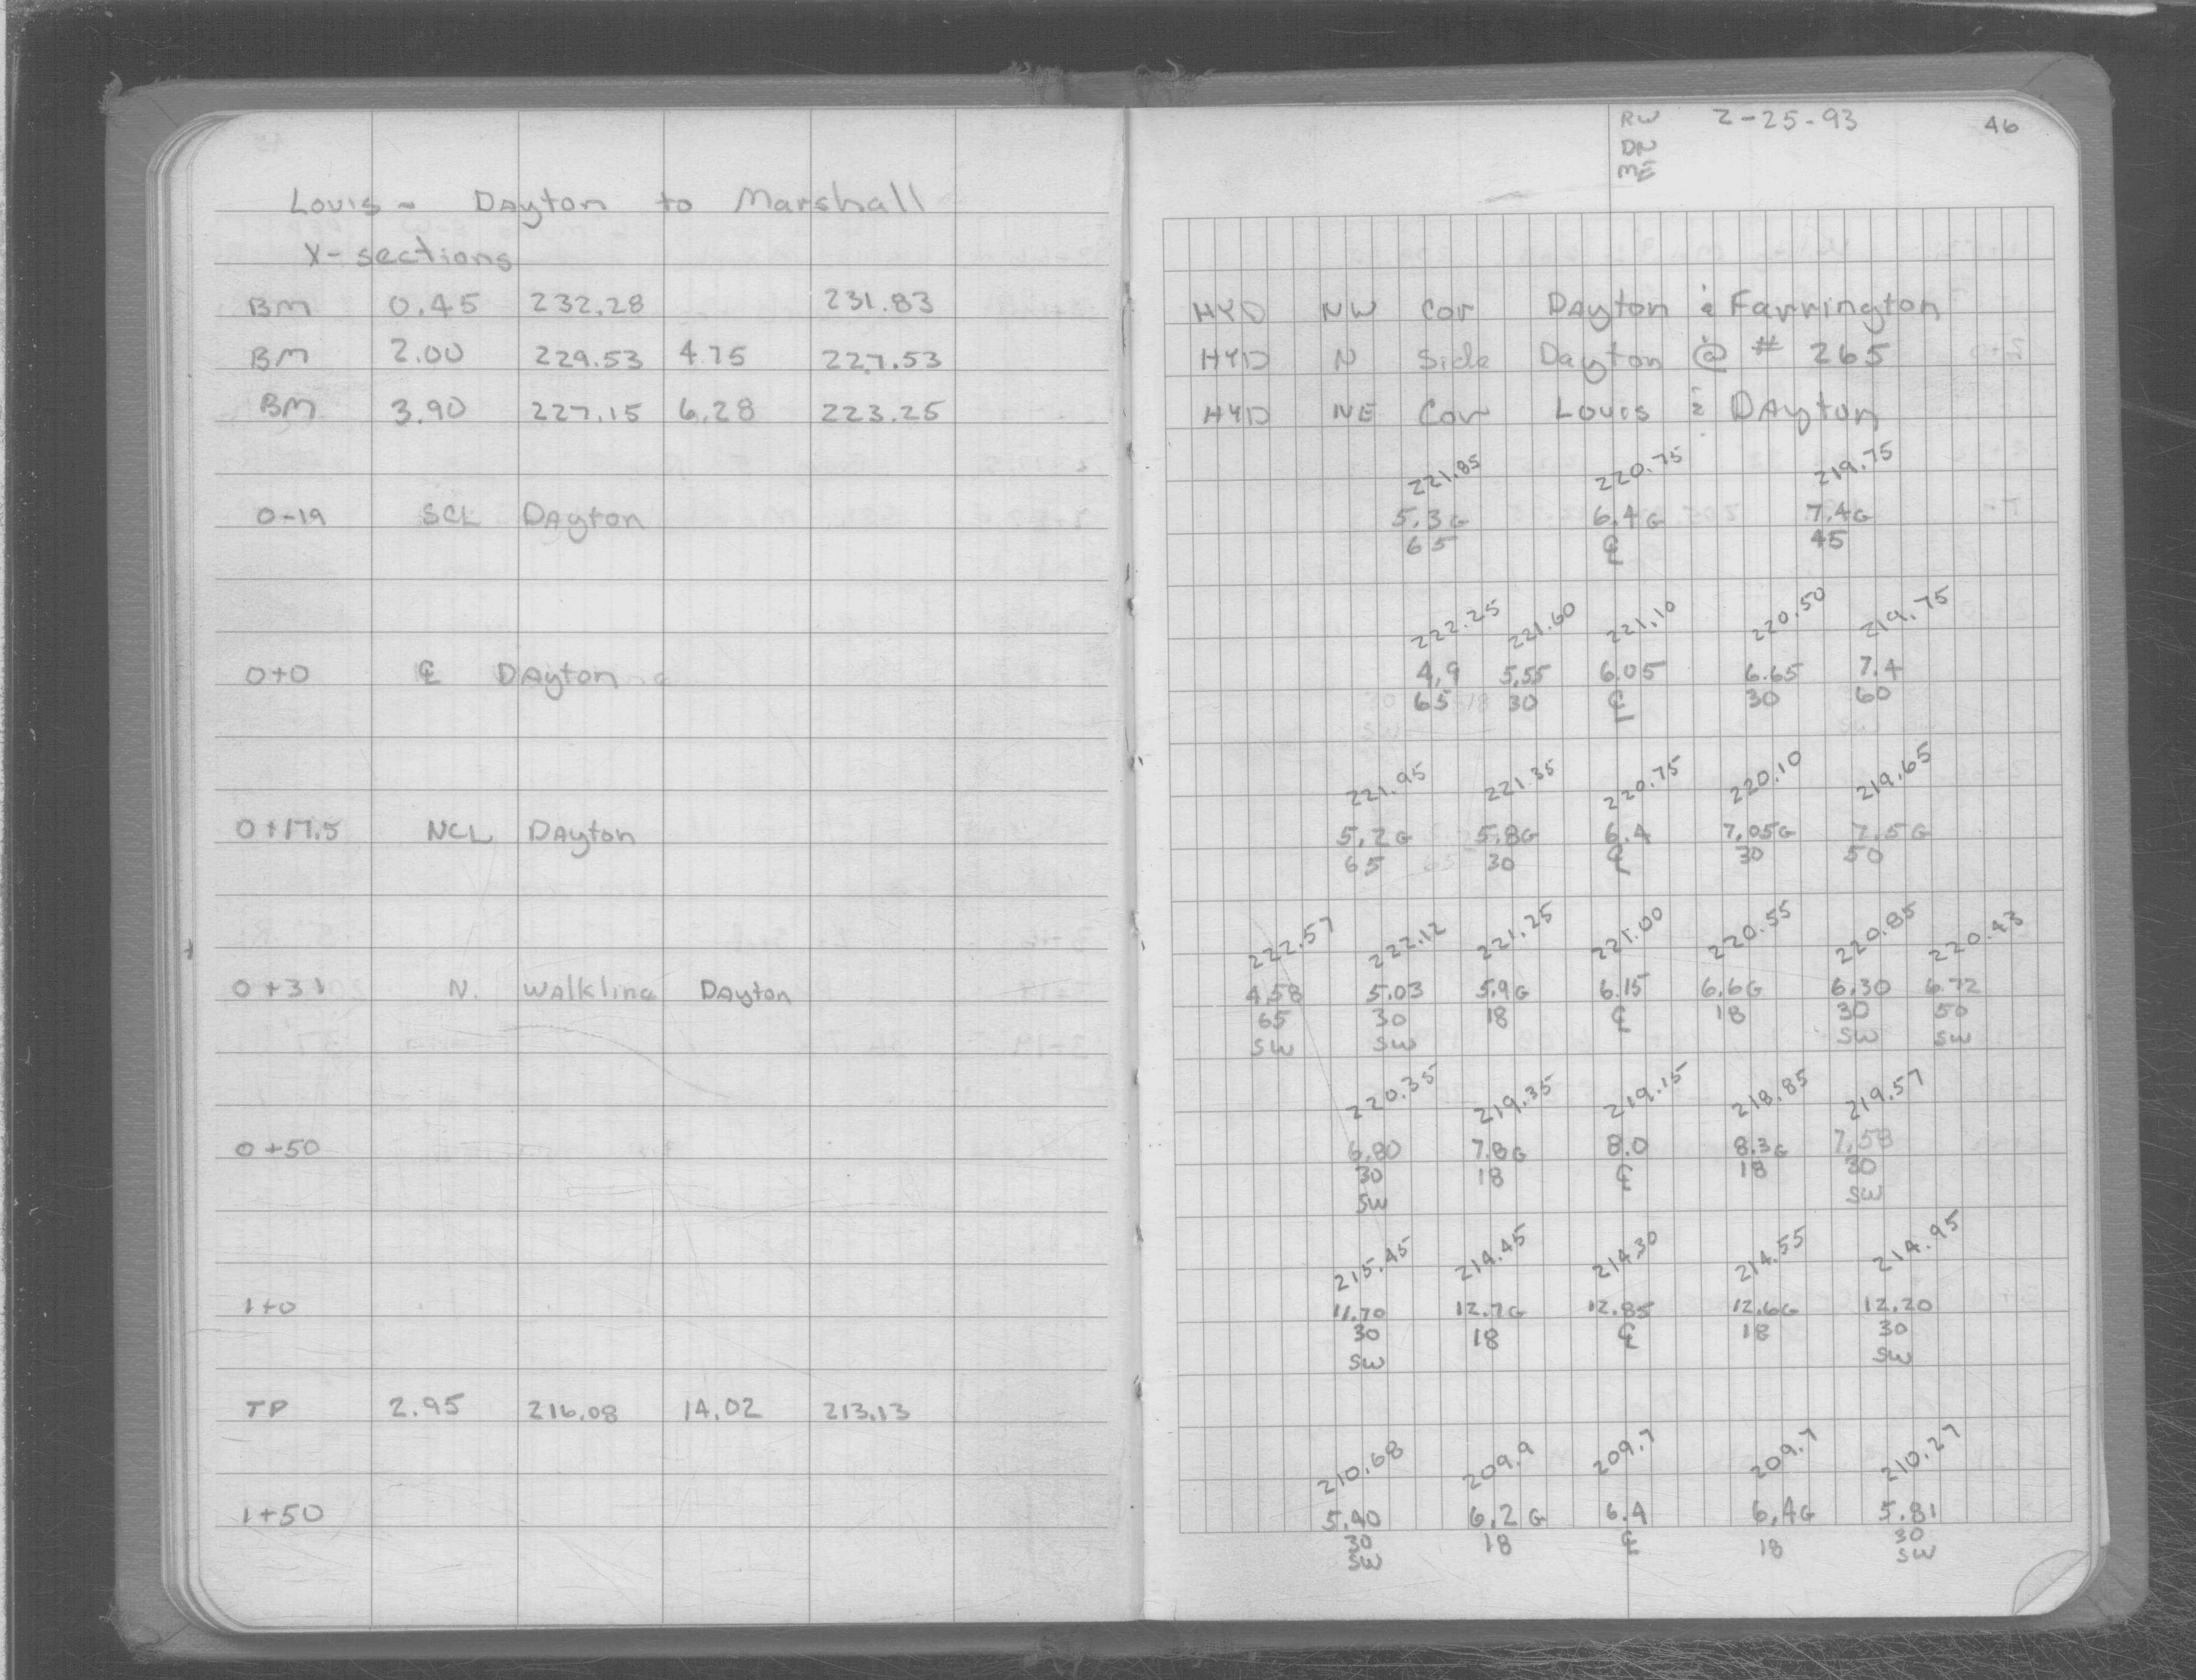 Louis - Dayton to Marshall
X-sections
BM 0.45 232.28 231.83
BM 2.00 229.53 4.75 227.53
BM 3.90 227.15 6.28 223.25
0-19 SCL Dayton
0+0 ℄ Dayton
0+17.5 NCL Dayton
0+31 N. Walkline Dayton
0+50
1+0
TP 2.95 216.08 14.02 213.13
1+50
RW 2-25-93 46
DN
ME
HYD NW Cor Dayton & Farrington
HYD N Side Dayton @ # 265
HYD NE Cor Louis & Dayton
221.85 220.75 219.75
5.3G 6.4G 7.4G
65 ℄ 45
222.25 221.60 221.10 220.50 219.75
4.9 5.55 6.05 6.65 7.4
65 30 ℄ 30 60
221.95 221.35 220.75 220.10 219.65
5.2G 5.8G 6.4 7.05G 7.5G
65 30 ℄ 30 50
222.57 222.12 221.25 221.00 220.55 220.85 220.43
4.58 5.03 5.9G 6.15 6.6G 6.30 6.72
65 30 18 ℄ 18 30 50
SW SW SW SW
220.35 219.35 219.15 218.85 219.57
6.80 7.8G 8.0 8.3G 7.58
30 18 ℄ 18 30
SW SW
215.45 214.45 214.30 214.55 214.95
11.70 12.7G 12.85 12.6G 12.20
30 18 ℄ 18 30
SW SW
210.68 209.9 209.7 209.7 210.27
5.40 6.2G 6.4 6.4G 5.81
30 18 ℄ 18 30
SW SW